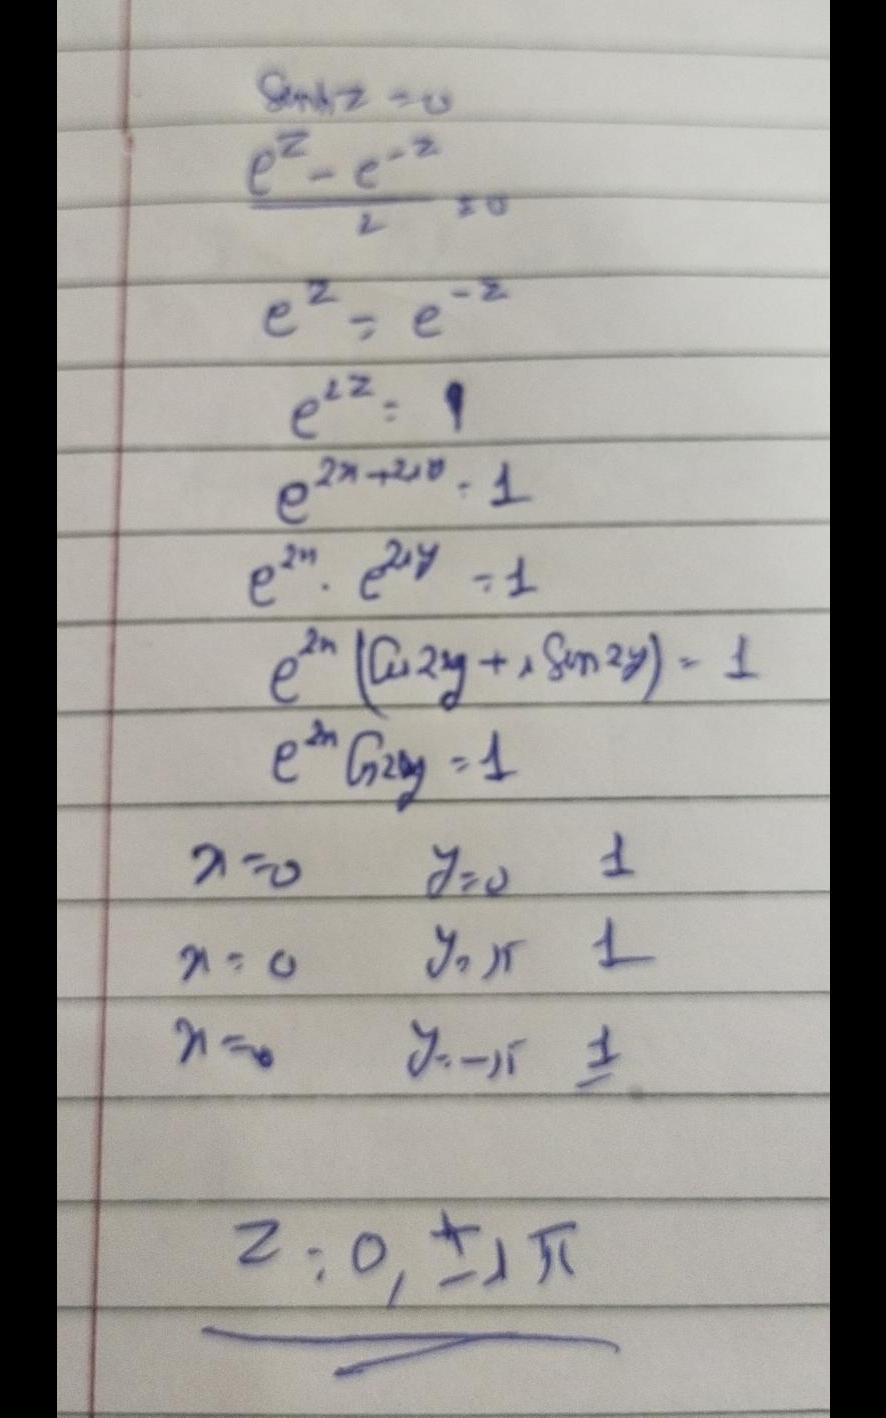 Sinh z = 0
e^z - e^-z
2 = 0
e^z = e^-z
e^2z = 1
e^2x+2iy = 1
e^2x . e^2iy = 1
e^2x (Cos 2y + i Sin 2y) = 1
e^2x Cos 2y = 1
x = 0 y = 0 1
x = 0 y = π 1
x = 0 y = -π 1
z = 0, ± i π